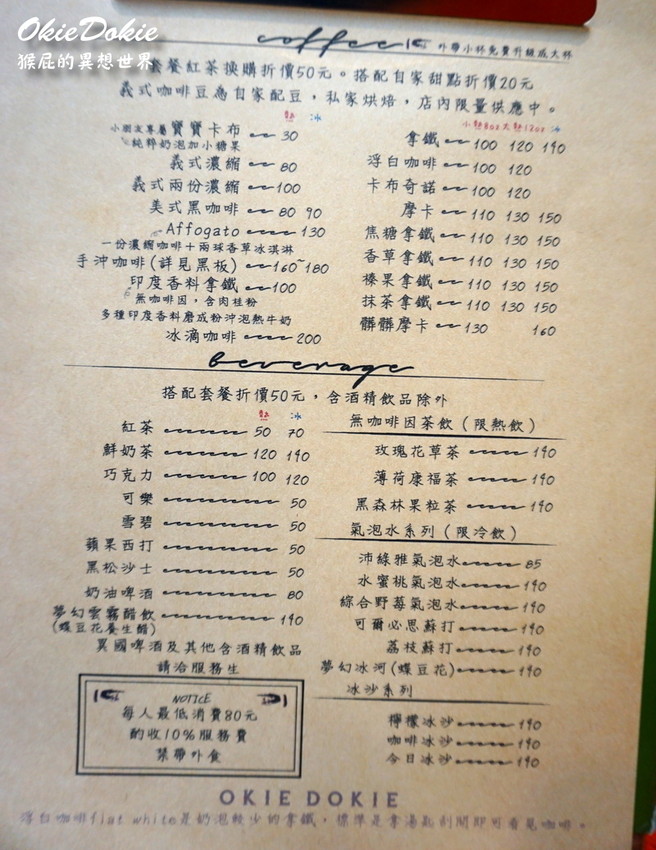 OkieDokie
猴屁的異想世界
coffee
外帶小杯免費升級成大杯
套餐紅茶換購折價50元。搭配自家甜點折價20元
義式咖啡豆為自家配豆，私家烘焙，店內限量供應中。
熱 冰
小朋友專屬寶寶卡布 30
純粹奶泡加小糖果
義式濃縮 80
義式兩份濃縮 100
美式黑咖啡 80 90
Affogato 130
一份濃縮咖啡+兩球香草冰淇淋
手沖咖啡(詳見黑板) 160~180
印度香料拿鐵 100
無咖啡因，含肉桂粉
多種印度香料磨成粉沖泡熱牛奶
冰滴咖啡 200
小熱8oz大熱12oz 冰
拿鐵 100 120 140
浮白咖啡 100 120
卡布奇諾 100 120
摩卡 110 130 150
焦糖拿鐵 110 130 150
香草拿鐵 110 130 150
榛果拿鐵 110 130 150
抹茶拿鐵 110 130 150
髒髒摩卡 130 160
beverage
搭配套餐折價50元，含酒精飲品除外
熱 冰
紅茶 50 70
鮮奶茶 120 140
巧克力 100 120
可樂 50
雪碧 50
蘋果西打 50
黑松沙士 50
奶油啤酒 80
夢幻雲霧醋飲 140
(蝶豆花養生醋)
異國啤酒及其他含酒精飲品
請洽服務生
NOTICE
每人最低消費80元
酌收10%服務費
禁帶外食
無咖啡因茶飲(限熱飲)
玫瑰花草茶 140
薄荷康福茶 140
黑森林果粒茶 140
氣泡水系列(限冷飲)
沛綠雅氣泡水 85
水蜜桃氣泡水 140
綜合野莓氣泡水 140
可爾必思蘇打 140
荔枝蘇打 140
夢幻冰河(蝶豆花) 140
冰沙系列
檸檬冰沙 140
咖啡冰沙 140
今日冰沙 140
OKIE DOKIE
浮白咖啡flat white是奶泡較少的拿鐵，標準是拿湯匙刮開即可看見咖啡。